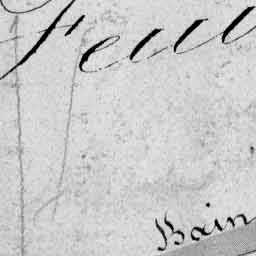 Feuil
Bain